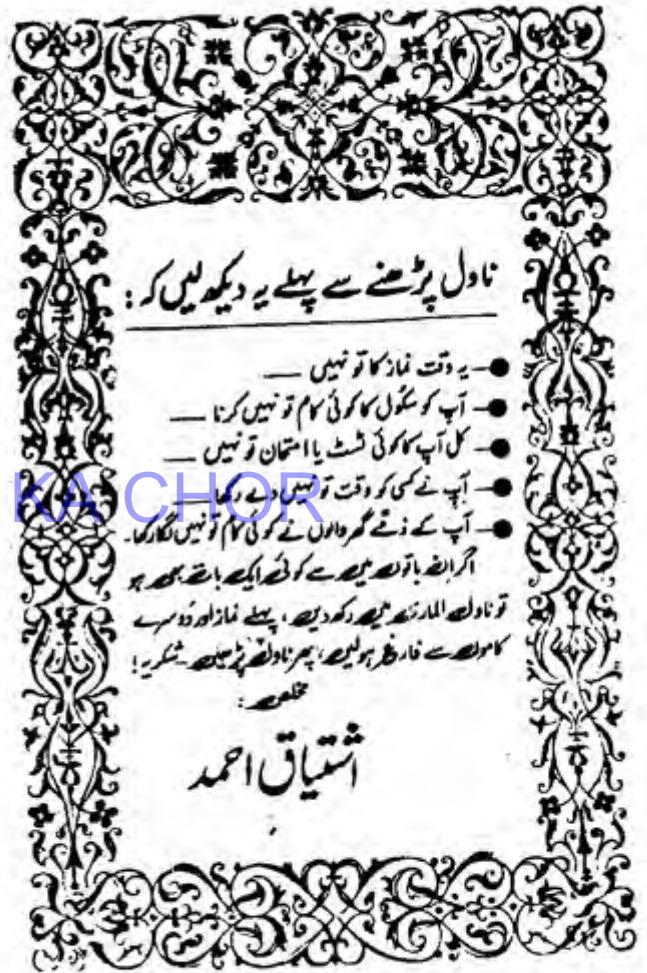 ناول پڑھنے سے پہلے یہ دیکھ لیں کہ :
● یہ وقت نماز کا تو نہیں —
● آپ کو سکول کا کوئی کام تو نہیں کرنا —
● کل آپ کا کوئی ٹسٹ یا امتحان تو نہیں —
● آپ نے کسی کو وقت تو نہیں دے رکھا —
KA CHOR
● آپ کے ذمے گھر والوں نے کوئی کام تو نہیں لگا رکھا۔
اگر ان باتوں میں سے کوئی ایک بات بھی ہو
تو ناول الماری میں رکھ دیں، پہلے نماز اور دُوسرے
کاموں سے فارغ ہولیں، پھر ناول پڑھیں۔ شکریہ!
مخلص :
اشتیاق احمد